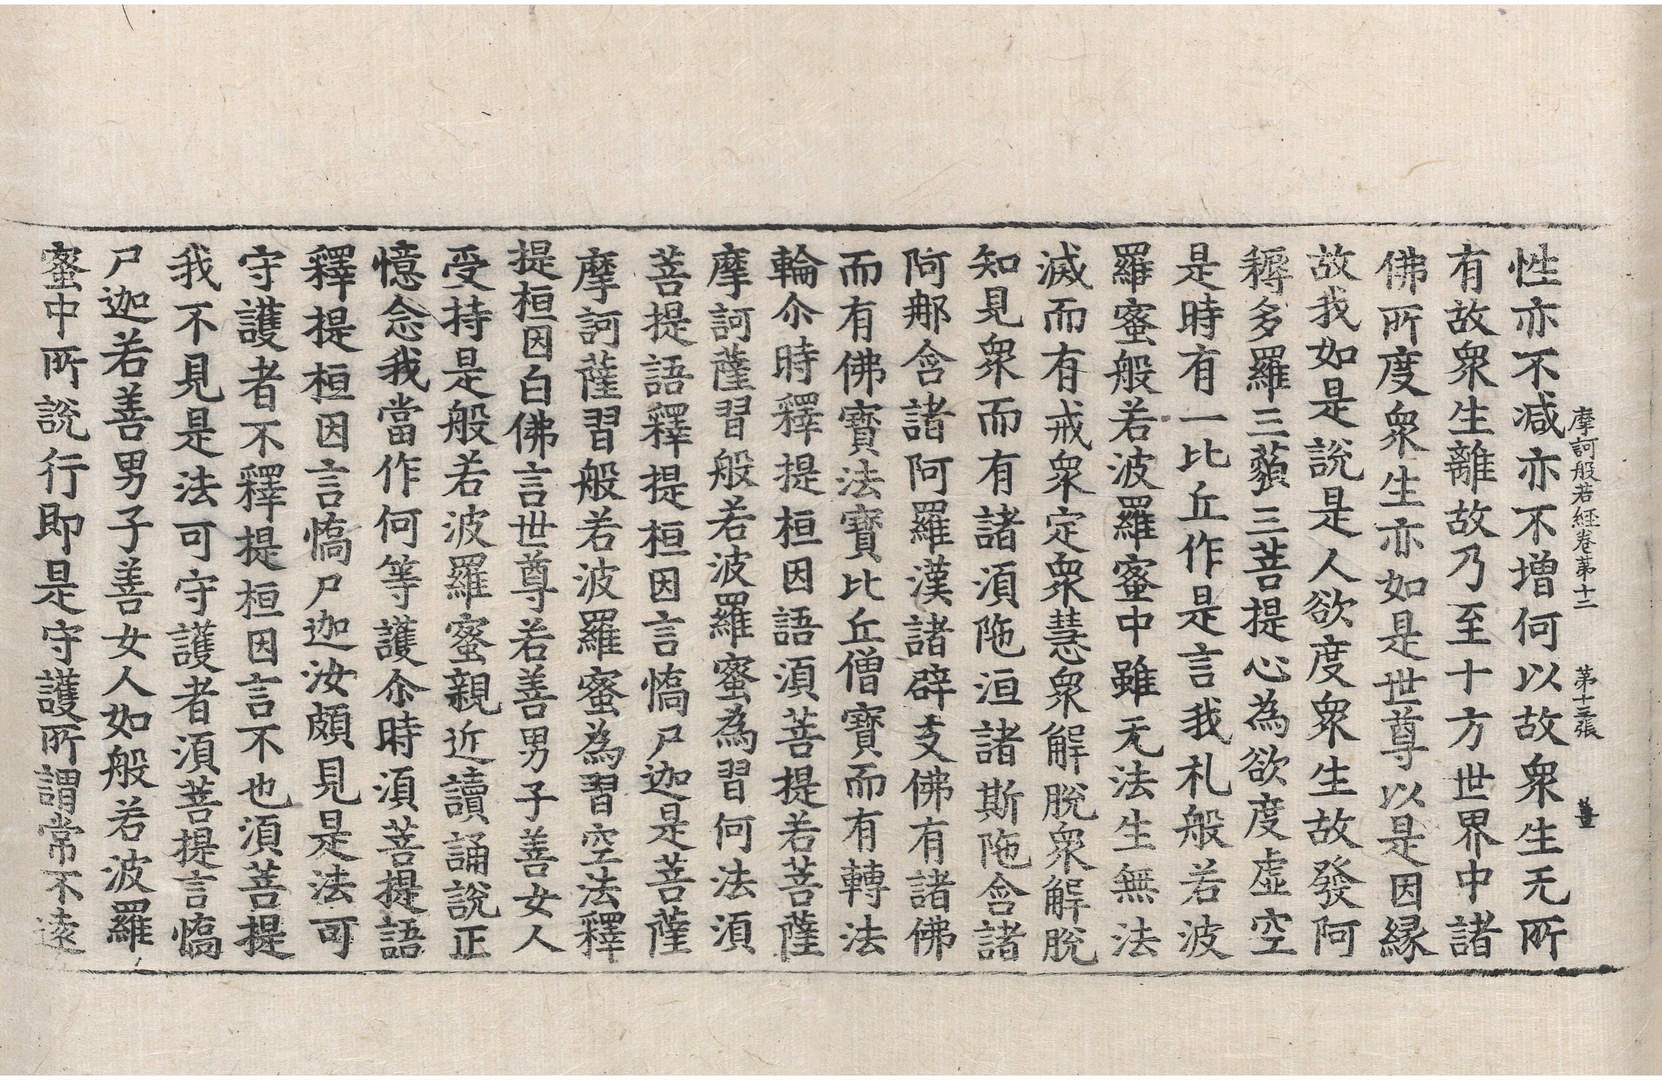 摩訶般若經卷第十二 第十三張 薑
性亦不減亦不增何以故衆生无所
有故衆生離故乃至十方世界中諸
佛所度衆生亦如是世尊以是因緣
故我如是說是人欲度衆生故發阿
耨多羅三藐三菩提心為欲度虛空
是時有一比丘作是言我礼般若波
羅蜜般若波羅蜜中雖无法生無法
滅而有戒衆定衆慧衆解脫衆解脫
知見衆而有諸湏陁洹諸斯陁含諸
阿那含諸阿羅漢諸辟支佛有諸佛
而有佛寶法寶比丘僧寶而有轉法
輪尒時釋提桓因語湏菩提若菩薩
摩訶薩習般若波羅蜜為習何法湏
菩提語釋提桓因言憍尸迦是菩薩
摩訶薩習般若波羅蜜為習空法釋
提桓因白佛言世尊若善男子善女人
受持是般若波羅蜜親近讀誦說正
憶念我當作何等護尒時湏菩提語
釋提桓因言憍尸迦汝頗見是法可
守護者不釋提桓因言不也湏菩提
我不見是法可守護者湏菩提言憍
尸迦若善男子善女人如般若波羅
蜜中所說行即是守護所謂常不遠